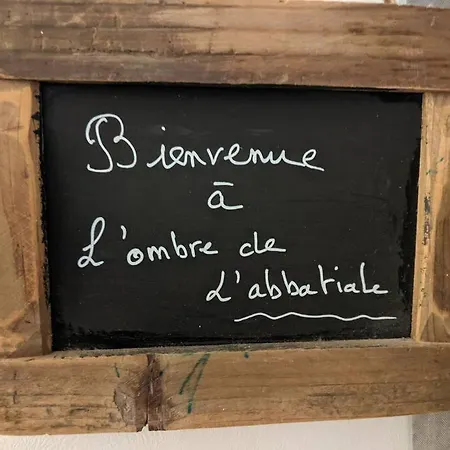 Bienvenue
à
L'ombre de
L'abbatiale